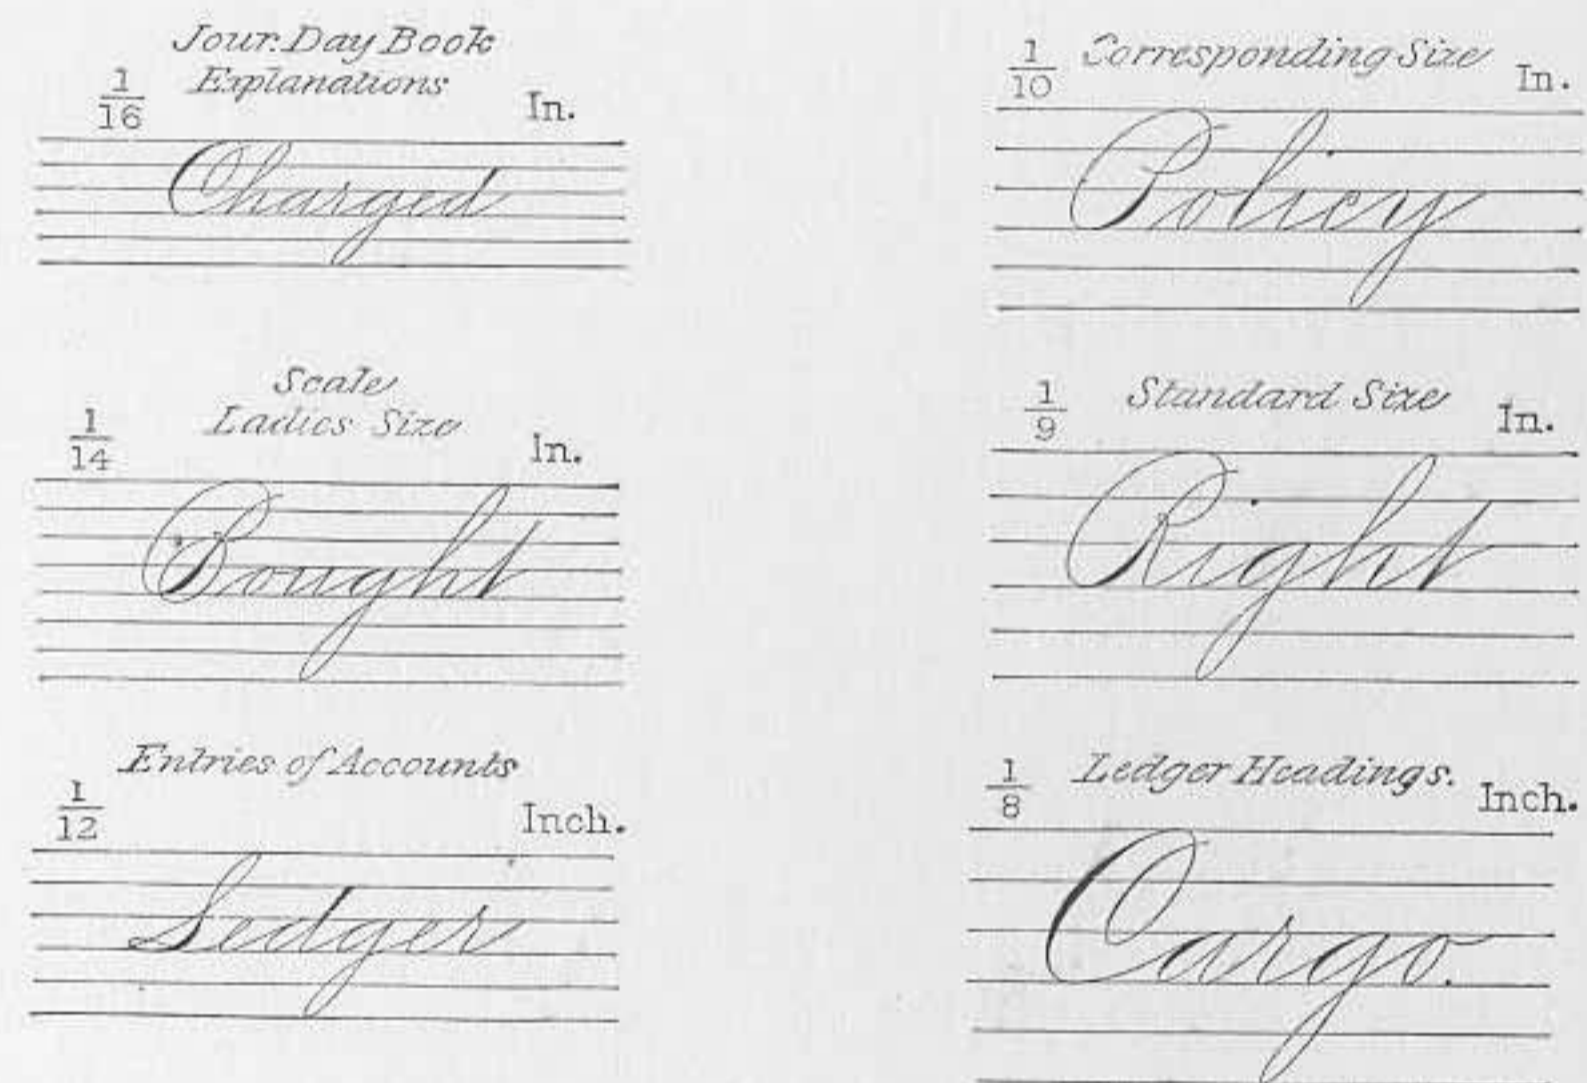 Jour. Day Book
Explanations
1/16 In.
Charged
Scale
Ladies Size
1/14 In.
Bought
Entries of Accounts
1/12 Inch.
Ledger
Corresponding Size
1/10 In.
Policy
Standard Size
1/9 In.
Right
Ledger Headings.
1/8 Inch.
Cargo.